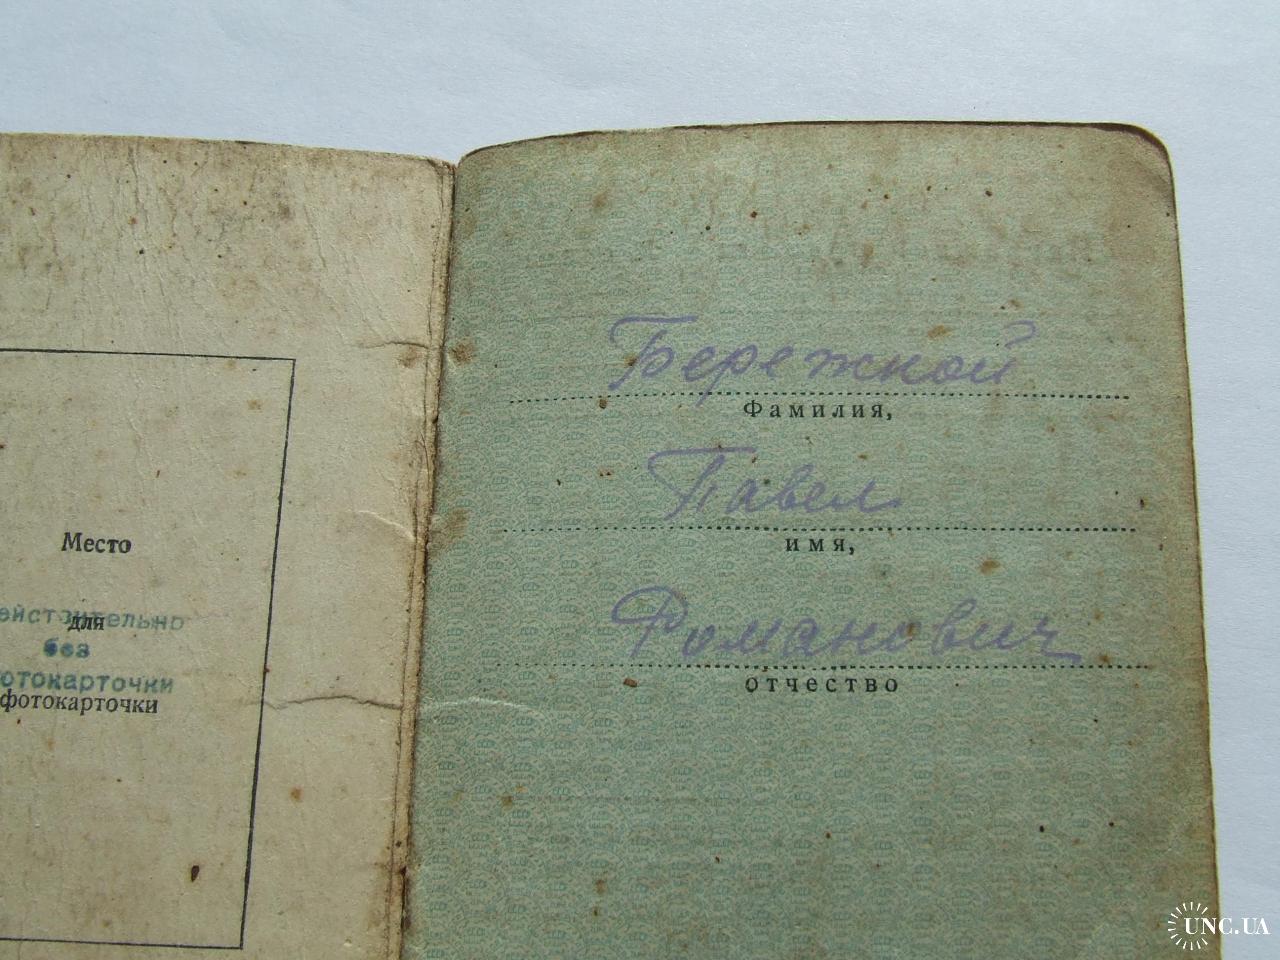 Место
для
фотокарточки
ействительно
без
отокарточки
Бережной
Фамилия,
Павел
имя,
Романович
отчество
UNC.UA